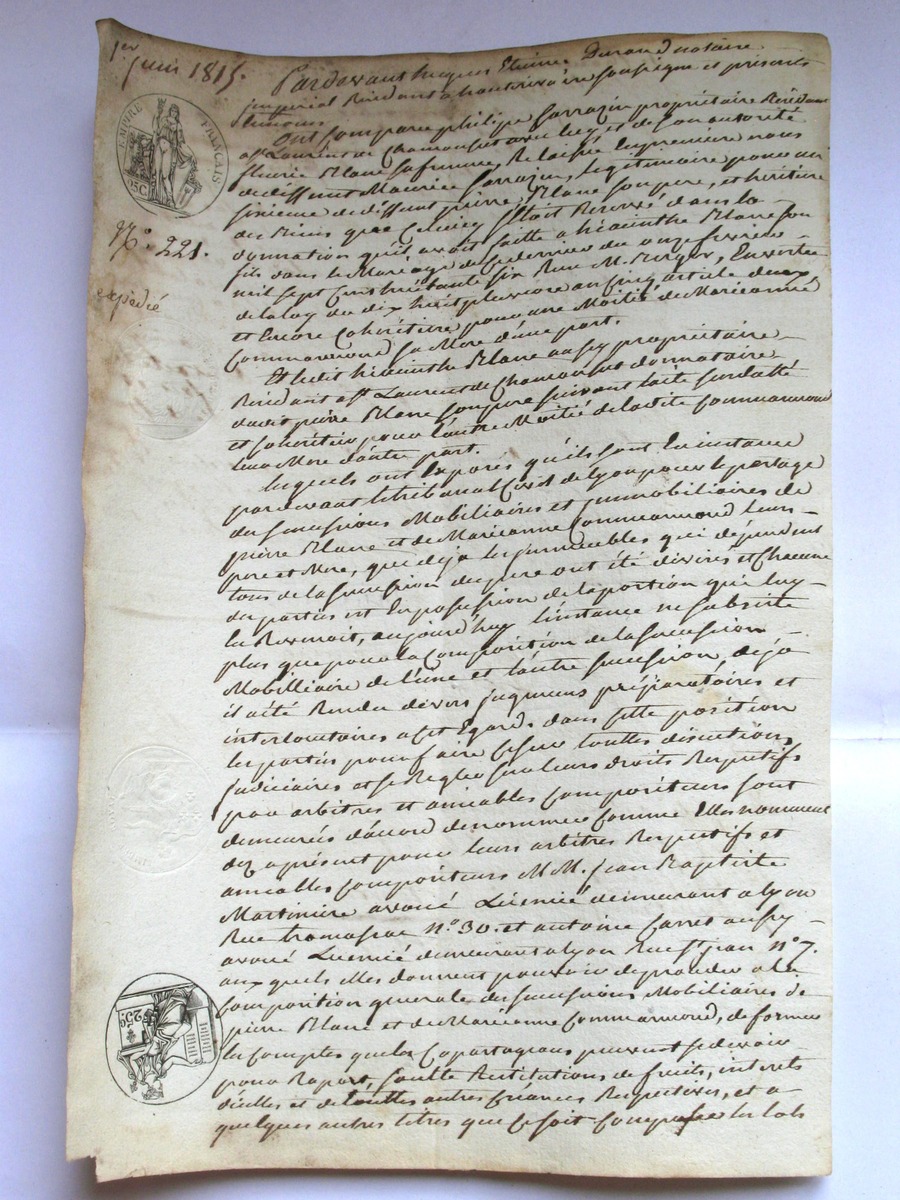 1er
juin 1815.
EMPIRE FRANÇAIS
25C
No. 221.
expédié
Pardevant hugues Etienne Durand notaire
impérial Résidant a hauterivoire soussigné et présents
témoins
Ont Comparu philipe Sarrazin propriétaire Résidant
a St Laurent de Chamousset avec luy et de son autorité
fleurie Blanc sa femme, Relaissée En première nous
de deffunt Maurice Sarrazin, légitimaire pour un
sixieme de deffunt pierre Blanc son pere, et héritière
des Biens que Celuicy S'étoit Reservé dans la
donnation qu'il avoit faitte a hiacinthe Blanc son
fils dans le Mariage de Ce dernier du onze fevrier
mil sept Cens huitante six Reçu M. Enver
de la loy du dix huit pluviose an Cinq article deux
et Encore Cohéritière pour une Moitié de Marieanne
Commarmond sa Mere d'une part.
Et ledit hiacinthe Blanc aussy propriétaire
Résidant a St Laurent de Chamousset donnataire
dudit pierre Blanc son pere suivant l'acte susdatté
et son héritier pour l'autre Moitié de ladite Commarmond
sa Mere d'autre part.
lesquels ont Exposés qu'ils sont En instance
pardevant le tribunal Civil de Lyon pour le partage
des successions Mobiliaires et immobiliaires de
pierre Blanc et de Marieanne Commarmond leurs
pere et Mere, que déja les immeubles qui dépendent
tous de la succession du pere ont été divisés et Chacune
des parties est En possession de la portion qui luy
Revenoit, aujourd'huy l'instance ne subsiste
plus que pour la Composition de la succession
Mobilliaire de l'une et l'autre succession, déja
il a été Rendu divers jugemens préparatoires et
interlocutoires a Cet Egard. dans Cette position
les parties pour faire Cesser touttes discutions
judiciaires et se Regler sur leurs droits Respectifs
par arbitres et amiables Compositeurs sont
demeurées d'accord de nommer Comme Elles nomment
dez aprésent pour leurs arbitres Respectifs et
amiables Compositeurs M.M. jean Baptiste
Martiniere avoué Licencié demeurant a lyon
Rue tramassac No. 30. et antoine Carret aussy
avoué Licencié demeurant a lyon Rue St jean No 7.
auxquels Elles donnent pouvoir de proceder a la
Composition generale des successions Mobiliaires de
pierre Blanc et de Marieanne Commarmond, de former
les Comptes que les Copartageans peuvent se devoir
pour Raport, soulte Restitutions de fruits, interets
d'icelles et de touttes autres Créances Respectives, et a
quelques autres titres que Ce soit Composer les lots
25c